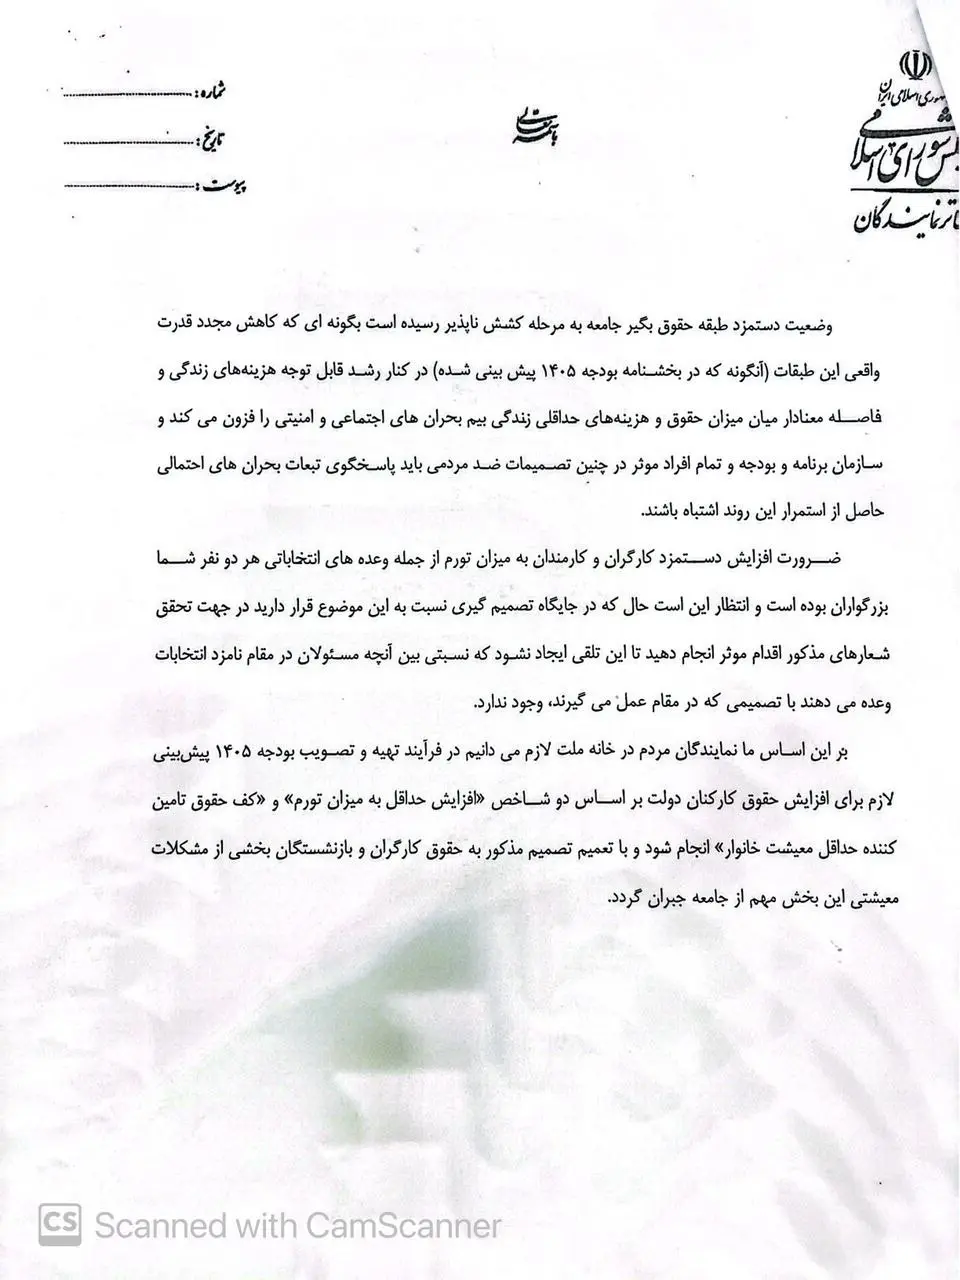 جمهوری اسلامی ایران
مجلس شورای اسلامی
دفتر نمایندگان
باسمه تعالی
شماره :
تاریخ :
پیوست :
وضعیت دستمزد طبقه حقوق بگیر جامعه به مرحله کشش ناپذیر رسیده است بگونه ای که کاهش مجدد قدرت
واقعی این طبقات (آنگونه که در بخشنامه بودجه ۱۴۰۵ پیش بینی شده) در کنار رشد قابل توجه هزینه‌های زندگی و
فاصله معنادار میان میزان حقوق و هزینه‌های حداقلی زندگی بیم بحران های اجتماعی و امنیتی را فزون می کند و
سازمان برنامه و بودجه و تمام افراد موثر در چنین تصمیمات ضد مردمی باید پاسخگوی تبعات بحران های احتمالی
حاصل از استمرار این روند اشتباه باشند.
ضرورت افزایش دستمزد کارگران و کارمندان به میزان تورم از جمله وعده های انتخاباتی هر دو نفر شما
بزرگواران بوده است و انتظار این است حال که در جایگاه تصمیم گیری نسبت به این موضوع قرار دارید در جهت تحقق
شعارهای مذکور اقدام موثر انجام دهید تا این تلقی ایجاد نشود که نسبتی بین آنچه مسئولان در مقام نامزد انتخابات
وعده می دهند با تصمیمی که در مقام عمل می گیرند، وجود ندارد.
بر این اساس ما نمایندگان مردم در خانه ملت لازم می دانیم در فرآیند تهیه و تصویب بودجه ۱۴۰۵ پیش‌بینی
لازم برای افزایش حقوق کارکنان دولت بر اساس دو شاخص «افزایش حداقل به میزان تورم» و «کف حقوق تامین
کننده حداقل معیشت خانوار» انجام شود و با تعمیم تصمیم مذکور به حقوق کارگران و بازنشستگان بخشی از مشکلات
معیشتی این بخش مهم از جامعه جبران گردد.
CS Scanned with CamScanner